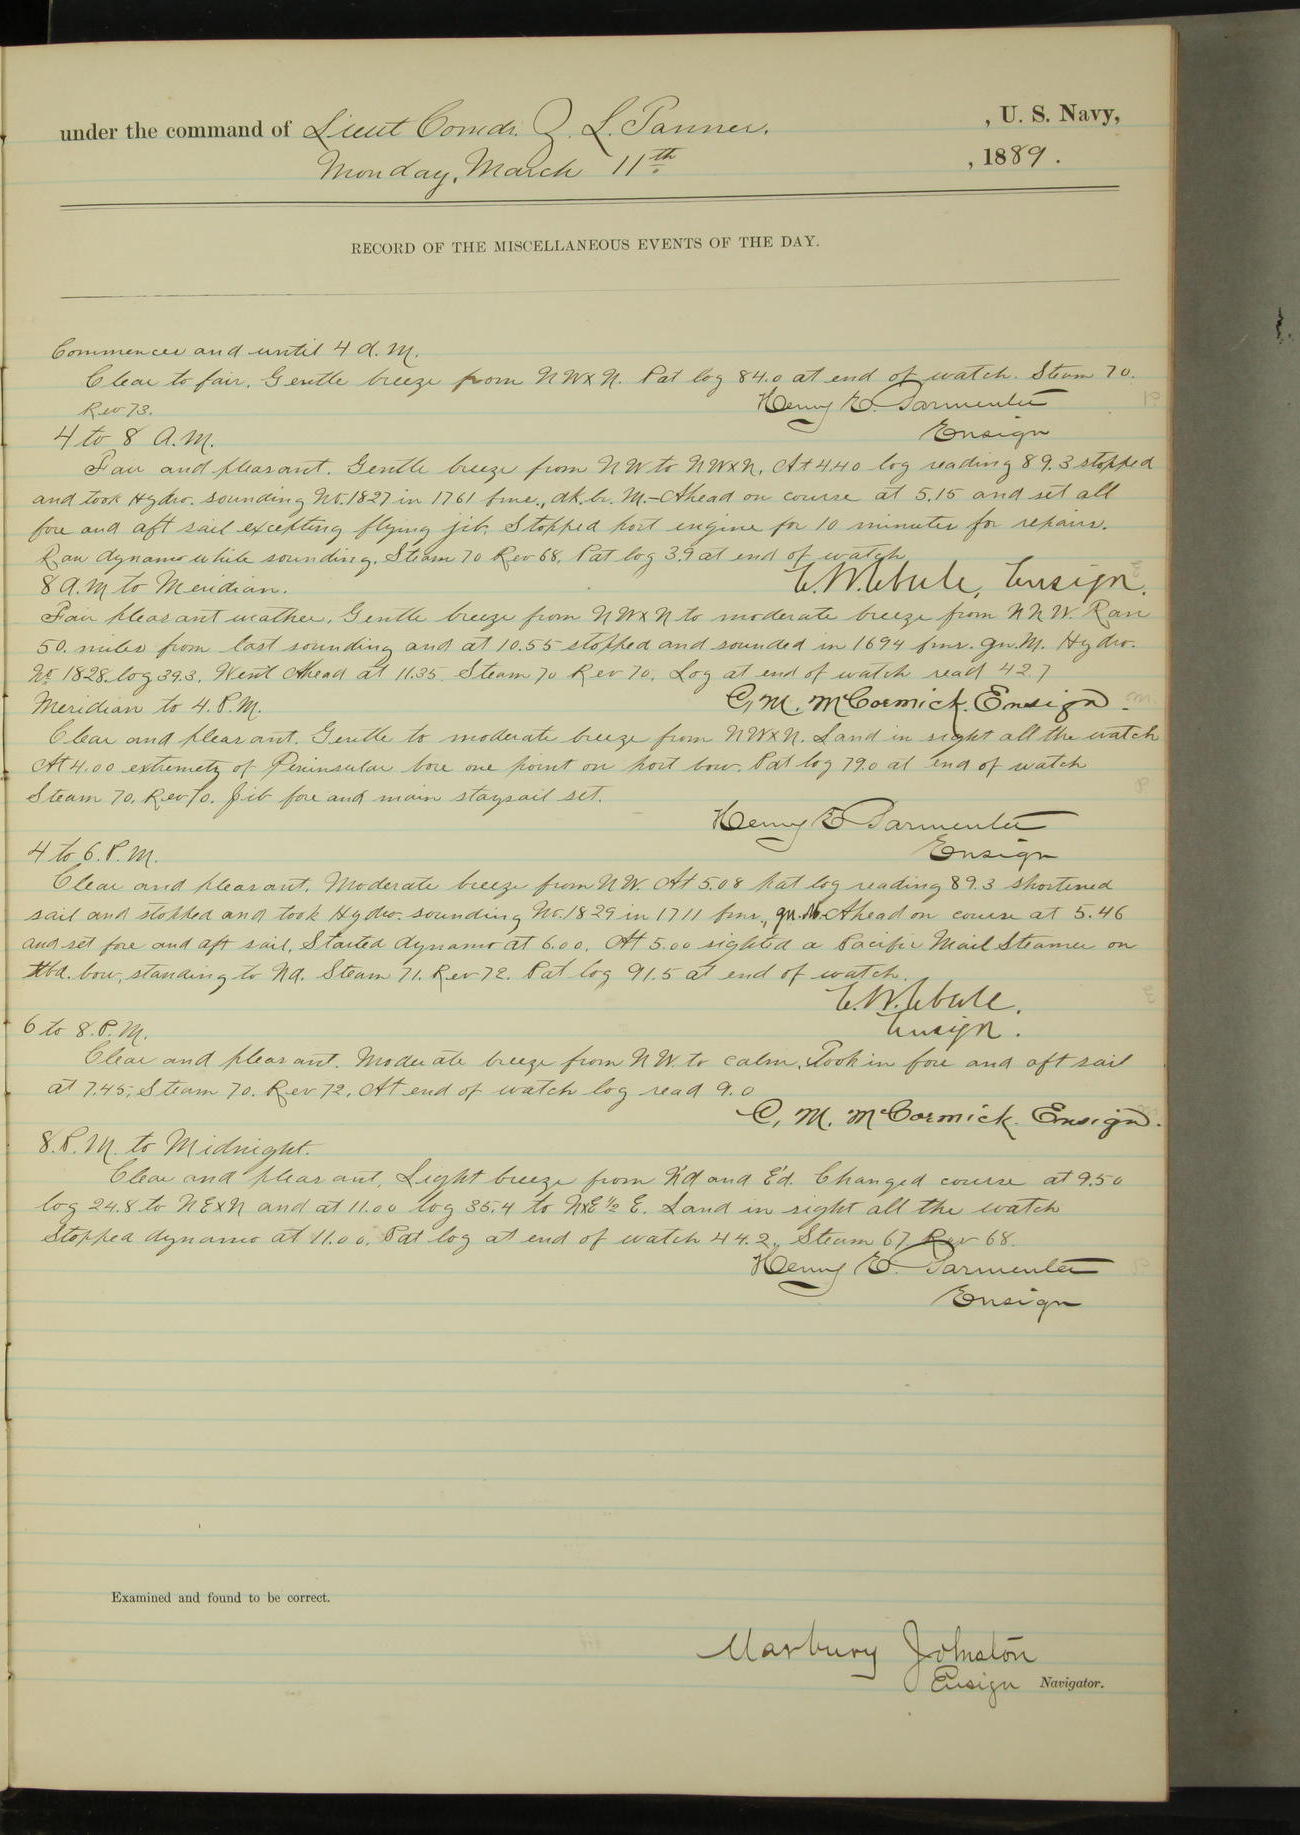 under the command of Lieut Comdr. Z. L. Tanner. , U. S. Navy,
Monday, March 11th , 1889.
RECORD OF THE MISCELLANEOUS EVENTS OF THE DAY.
Commences and until 4 A.M.
Clear to fair. Gentle breeze from NWxN. Pat log 84.0 at end of watch. Steam 70.
Rev 73.
Henry E. Parmenter
Ensign
4 to 8 A.M.
Fair and pleasant. Gentle breeze from NW to NWxN. At 4.40 log reading 89.3 stopped
and took Hydro. sounding No. 1827 in 1761 fms., dk. br. M.- Ahead on course at 5.15 and set all
fore and aft sail excepting flying jib. Stopped port engine for 10 minutes for repairs.
Ran dynamo while sounding. Steam 70 Rev 68. Pat log 3.9 at end of watch
E. W. Eberle, Ensign.
8 A.M to Meridian.
Fair pleasant weather. Gentle breeze from NWxN to moderate breeze from NNW. Ran
50. miles from last sounding and at 10.55 stopped and sounded in 1694 fms. gn. M. Hydro.
No. 1828. log 39.3. Went Ahead at 11.35. Steam 70 Rev 70. Log at end of watch read 42.7
C. M. McCormick. Ensign.
Meridian to 4. P.M.
Clear and pleasant. Gentle to moderate breeze from NWxN. Land in sight all the watch
At 4.00 extremety of Peninsular bore one point on port bow. Pat log 79.0 at end of watch
Steam 70. Rev 70. Jib fore and main staysail set.
Henry E Parmenter
Ensign
4 to 6. P.M.
Clear and pleasant. Moderate breeze from NW. At 5.08 pat log reading 89.3 shortened
sail and stopped and took Hydro. sounding No. 1829 in 1711 fms., gn. M. Ahead on course at 5.46
and set fore and aft sail. Started dynamo at 6.00. At 5.00 sighted a Pacific Mail Steamer on
stbd. bow, standing to Nd. Steam 71. Rev 72. Pat log 91.5 at end of watch.
E. W. Eberle.
Ensign.
6 to 8. P.M.
Clear and pleasant. Moderate breeze from NW. to calm. Took in fore and aft sail
at 7.45; Steam 70. Rev 72. At end of watch log read 9.0
C. M. McCormick. Ensign.
8. P.M. to Midnight.
Clear and pleasant, Light breeze from N'd and E'd. Changed course at 9.50
log 24.8 to NExN and at 11.00 log 35.4 to NxE 1/2 E. Land in sight all the watch
Stopped dynamo at 11.00. Pat log at end of watch 44.2. Steam 67 Rev 68.
Henry E. Parmenter
Ensign
Examined and found to be correct.
Marbury Johnston
Ensign Navigator.